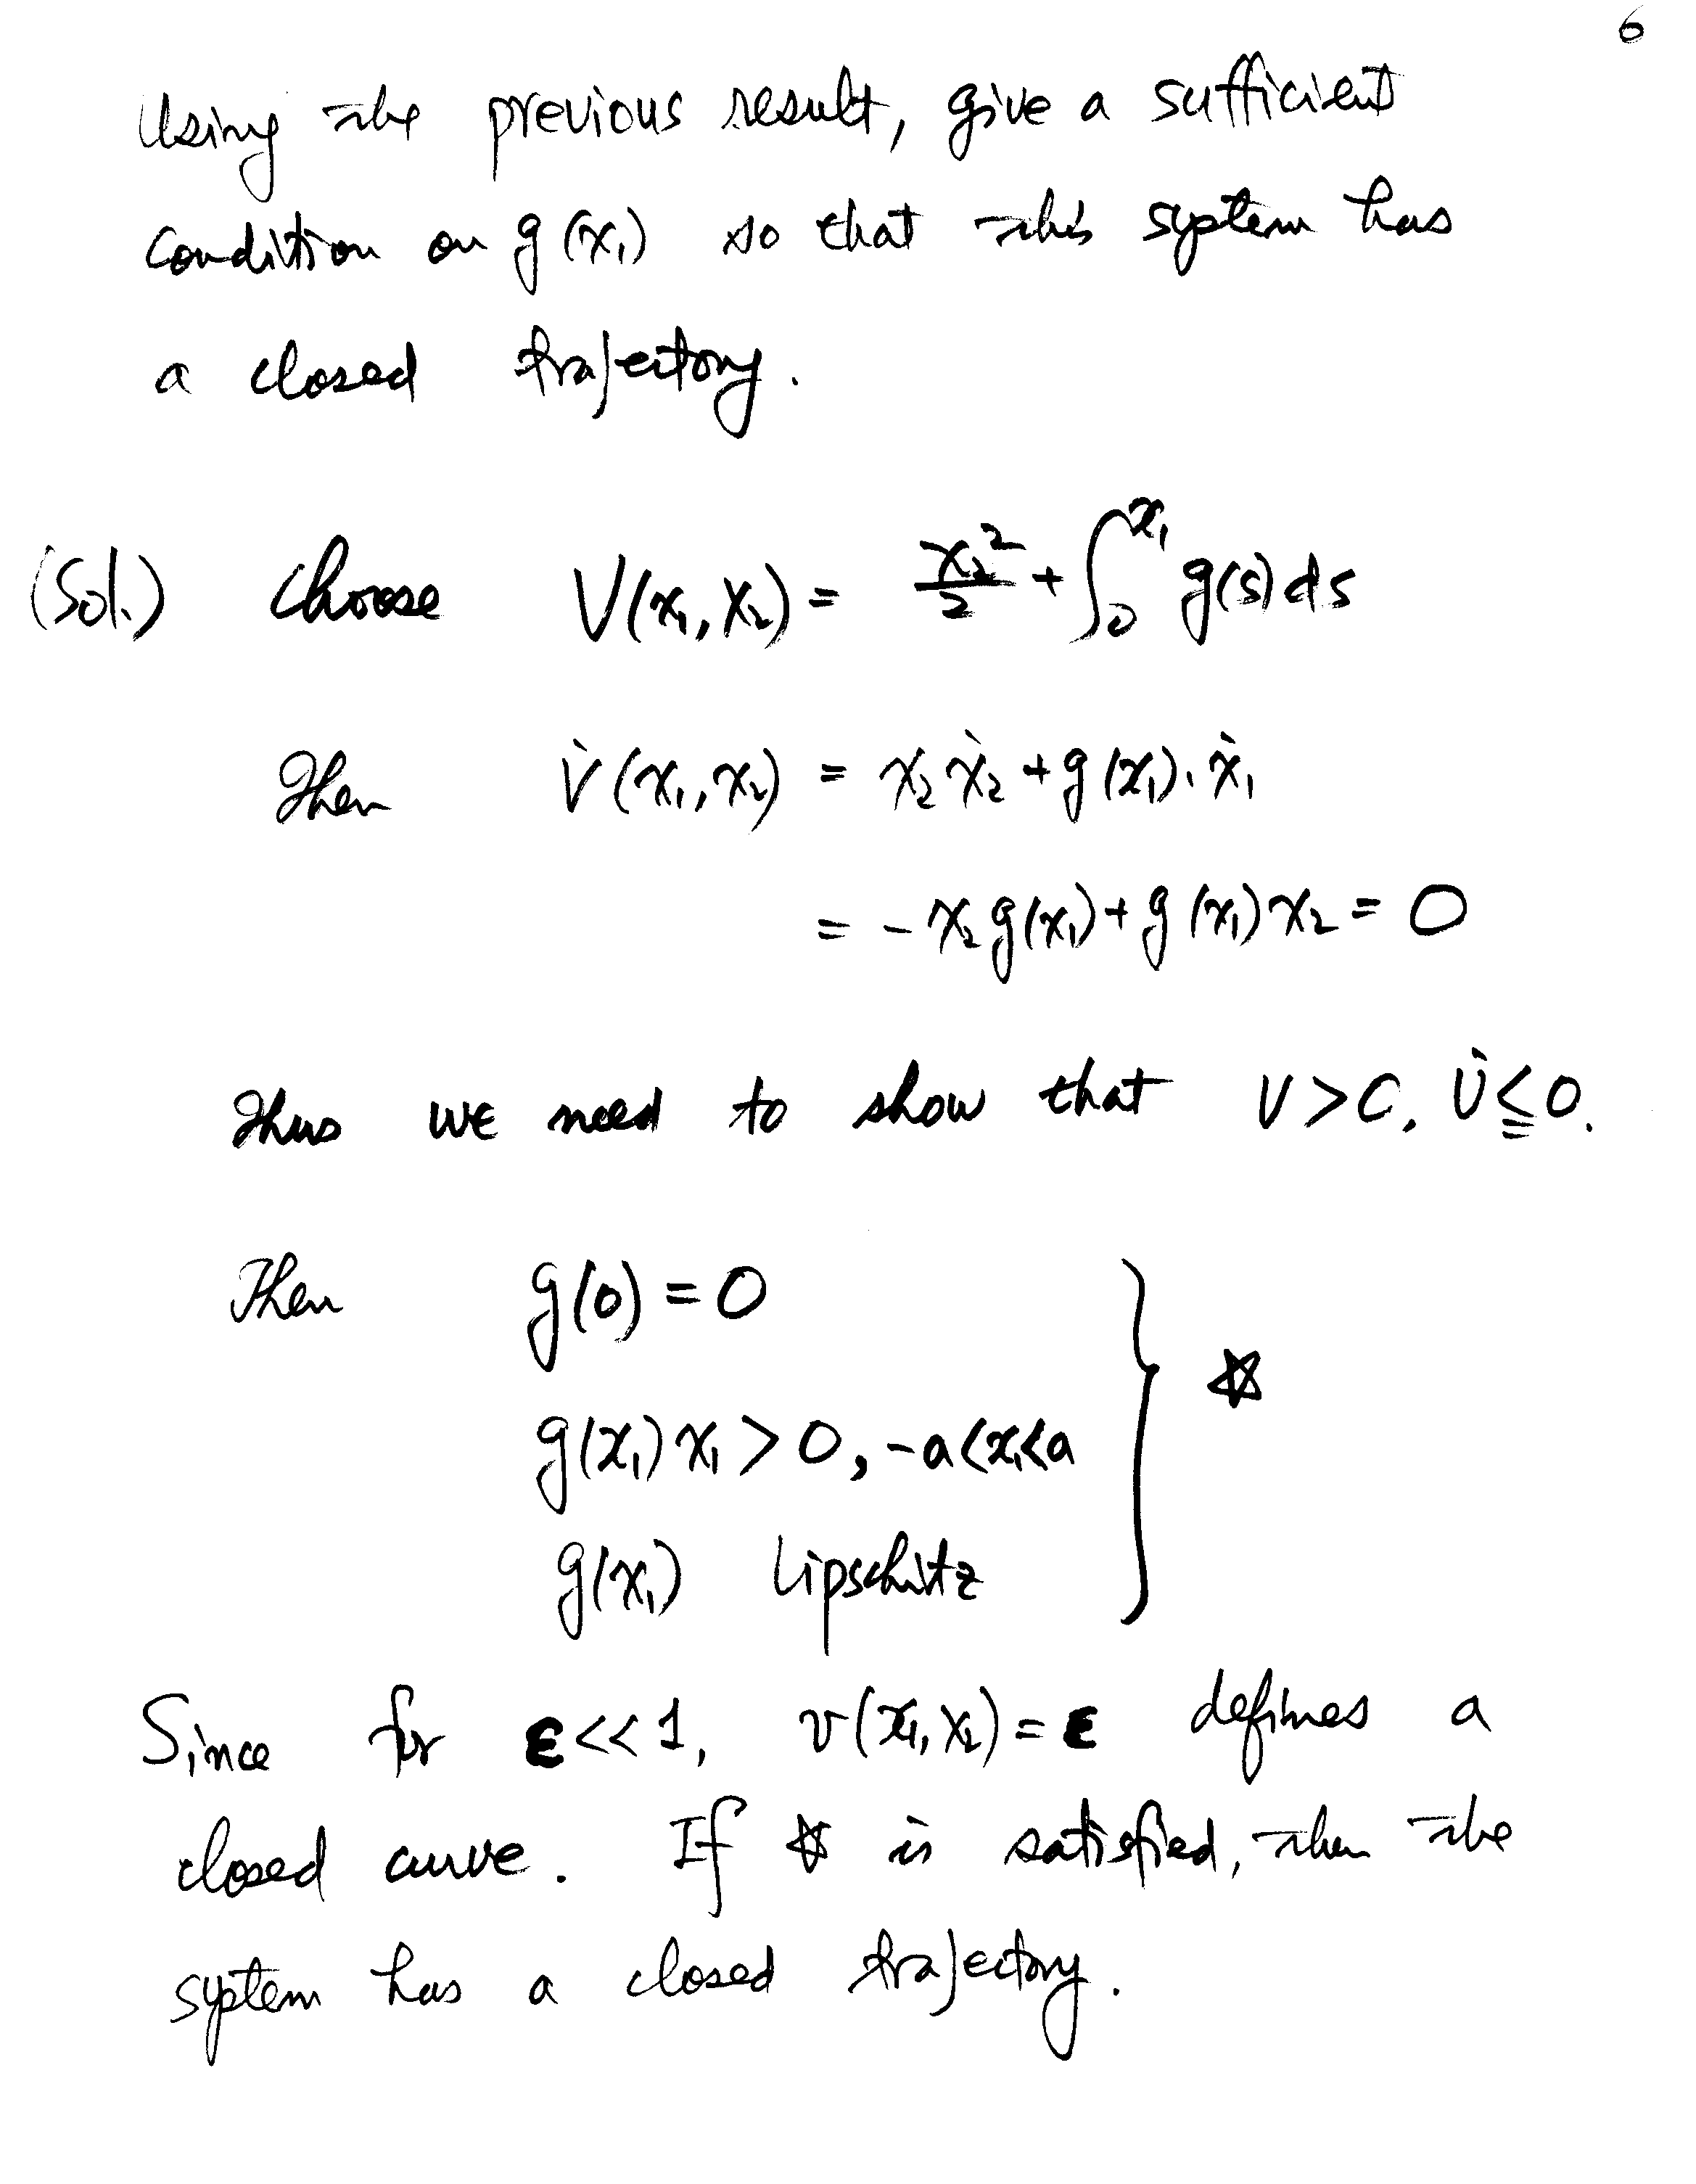 6
Using the previous result, give a sufficient
condition on g(x₁) so that this system has
a closed trajectory.
(Sol.) Choose V(x₁, x₂) = x₂²/2 + ∫₀^x₁ g(s) ds
Then V̇(x₁, x₂) = x₂ẋ₂ + g(x₁)·ẋ₁
= - x₂g(x₁) + g(x₁)x₂ = 0
Thus we need to show that V > 0, V̇ ≦ 0.
Then g(0) = 0
g(x₁)x₁ > 0, -a < x₁ < a } ☆
g(x₁) Lipschitz
Since for ε << 1, v(x₁, x₂) = ε defines a
closed curve. If ☆ is satisfied, then the
system has a closed trajectory.